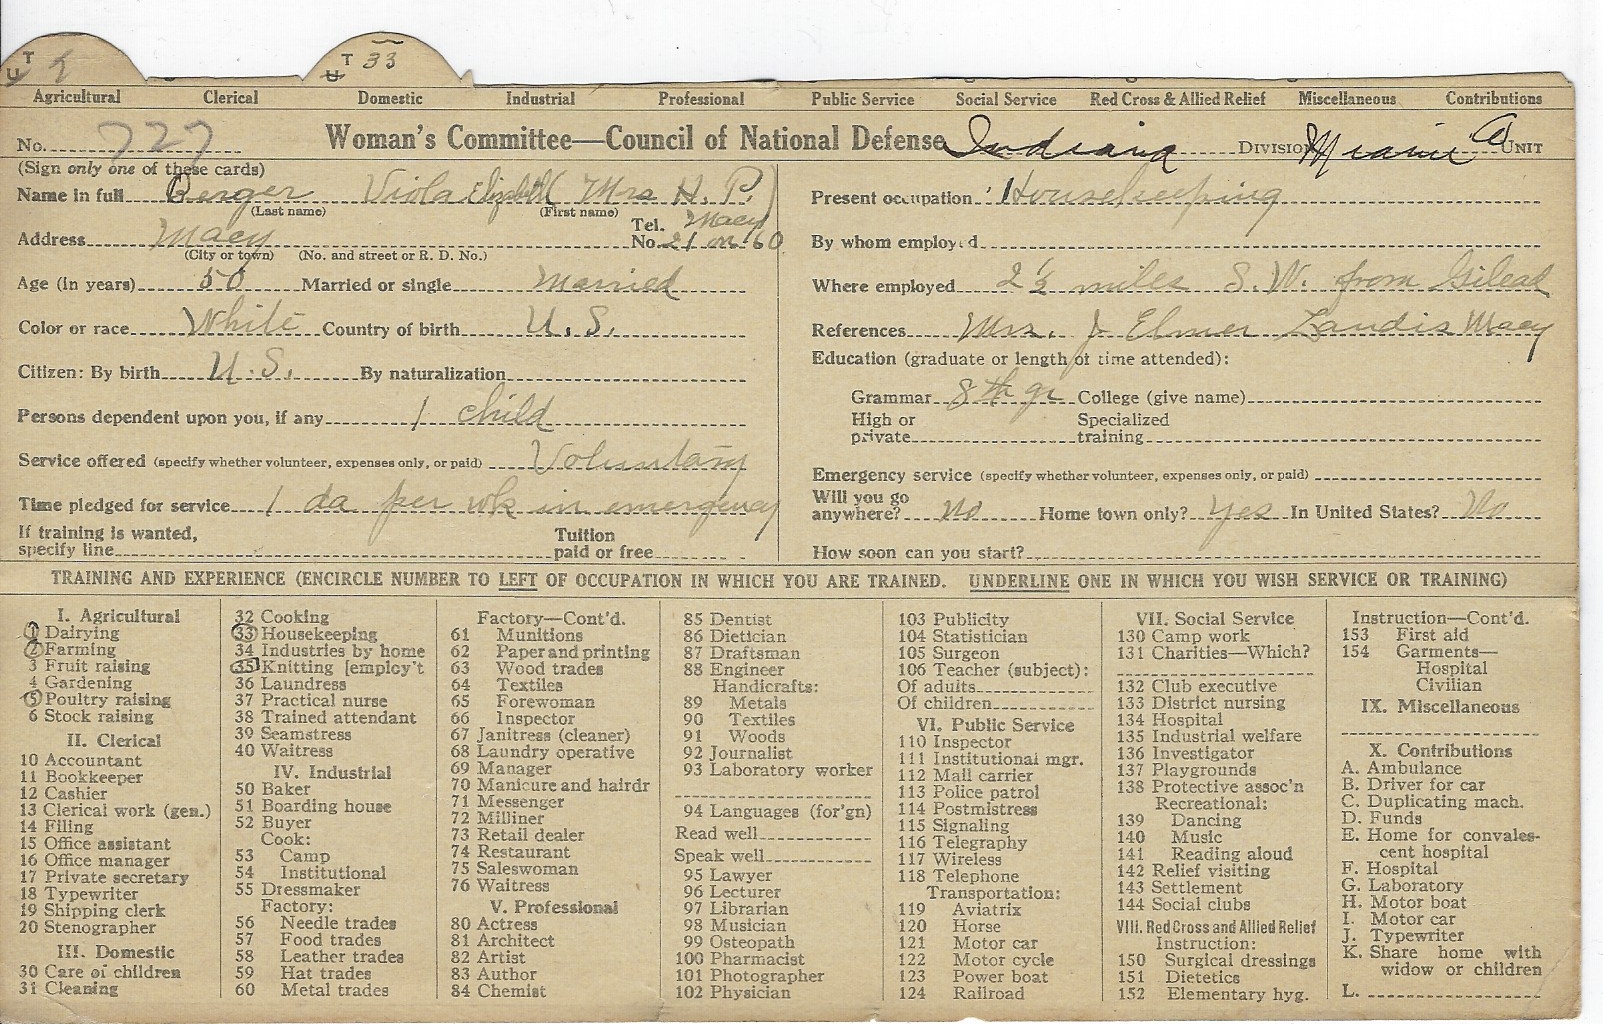 T
U
2
T 33
U
Agricultural Clerical Domestic Industrial Professional Public Service Social Service Red Cross & Allied Relief Miscellaneous Contributions
No. 727 Woman's Committee—Council of National Defense Indiana DIVISION Miami Co UNIT
(Sign only one of these cards)
Name in full Berger Viola Elizabeth (Mrs H. P.)
(Last name) (First name)
Address Macy Tel. No. Macy 21 on 60
(City or town) (No. and street or R. D. No.)
Age (in years) 50 Married or single Married
Color or race White Country of birth U. S.
Citizen: By birth U. S. By naturalization
Persons dependent upon you, if any 1 child
Service offered (specify whether volunteer, expenses only, or paid) Voluntary
Time pledged for service 1 da per wk in emergency
If training is wanted, specify line Tuition paid or free
Present occupation Housekeeping
By whom employed
Where employed 2 1/2 miles S. W. from Gilead
References Mrs. J Elmer Landis Macy
Education (graduate or length of time attended):
Grammar 8th gr College (give name)
High or private Specialized training
Emergency service (specify whether volunteer, expenses only, or paid)
Will you go anywhere? No Home town only? Yes In United States? No
How soon can you start?
TRAINING AND EXPERIENCE (ENCIRCLE NUMBER TO LEFT OF OCCUPATION IN WHICH YOU ARE TRAINED. UNDERLINE ONE IN WHICH YOU WISH SERVICE OR TRAINING)
I. Agricultural
1 Dairying
2 Farming
3 Fruit raising
4 Gardening
5 Poultry raising
6 Stock raising
II. Clerical
10 Accountant
11 Bookkeeper
12 Cashier
13 Clerical work (gen.)
14 Filing
15 Office assistant
16 Office manager
17 Private secretary
18 Typewriter
19 Shipping clerk
20 Stenographer
III. Domestic
30 Care of children
31 Cleaning
32 Cooking
33 Housekeeping
34 Industries by home
35 Knitting [employ't
36 Laundress
37 Practical nurse
38 Trained attendant
39 Seamstress
40 Waitress
IV. Industrial
50 Baker
51 Boarding house
52 Buyer
Cook:
53 Camp
54 Institutional
55 Dressmaker
Factory:
56 Needle trades
57 Food trades
58 Leather trades
59 Hat trades
60 Metal trades
Factory—Cont'd.
61 Munitions
62 Paper and printing
63 Wood trades
64 Textiles
65 Forewoman
66 Inspector
67 Janitress (cleaner)
68 Laundry operative
69 Manager
70 Manicure and hairdr
71 Messenger
72 Milliner
73 Retail dealer
74 Restaurant
75 Saleswoman
76 Waitress
V. Professional
80 Actress
81 Architect
82 Artist
83 Author
84 Chemist
85 Dentist
86 Dietician
87 Draftsman
88 Engineer
Handicrafts:
89 Metals
90 Textiles
91 Woods
92 Journalist
93 Laboratory worker
94 Languages (for'gn)
Read well
Speak well
95 Lawyer
96 Lecturer
97 Librarian
98 Musician
99 Osteopath
100 Pharmacist
101 Photographer
102 Physician
103 Publicity
104 Statistician
105 Surgeon
106 Teacher (subject):
Of adults
Of children
VI. Public Service
110 Inspector
111 Institutional mgr.
112 Mail carrier
113 Police patrol
114 Postmistress
115 Signaling
116 Telegraphy
117 Wireless
118 Telephone
Transportation:
119 Aviatrix
120 Horse
121 Motor car
122 Motor cycle
123 Power boat
124 Railroad
VII. Social Service
130 Camp work
131 Charities—Which?
132 Club executive
133 District nursing
134 Hospital
135 Industrial welfare
136 Investigator
137 Playgrounds
138 Protective assoc'n
Recreational:
139 Dancing
140 Music
141 Reading aloud
142 Relief visiting
143 Settlement
144 Social clubs
VIII. Red Cross and Allied Relief
Instruction:
150 Surgical dressings
151 Dietetics
152 Elementary hyg.
Instruction—Cont'd.
153 First aid
154 Garments—
Hospital
Civilian
IX. Miscellaneous
X. Contributions
A. Ambulance
B. Driver for car
C. Duplicating mach.
D. Funds
E. Home for convales-
cent hospital
F. Hospital
G. Laboratory
H. Motor boat
I. Motor car
J. Typewriter
K. Share home with
widow or children
L.